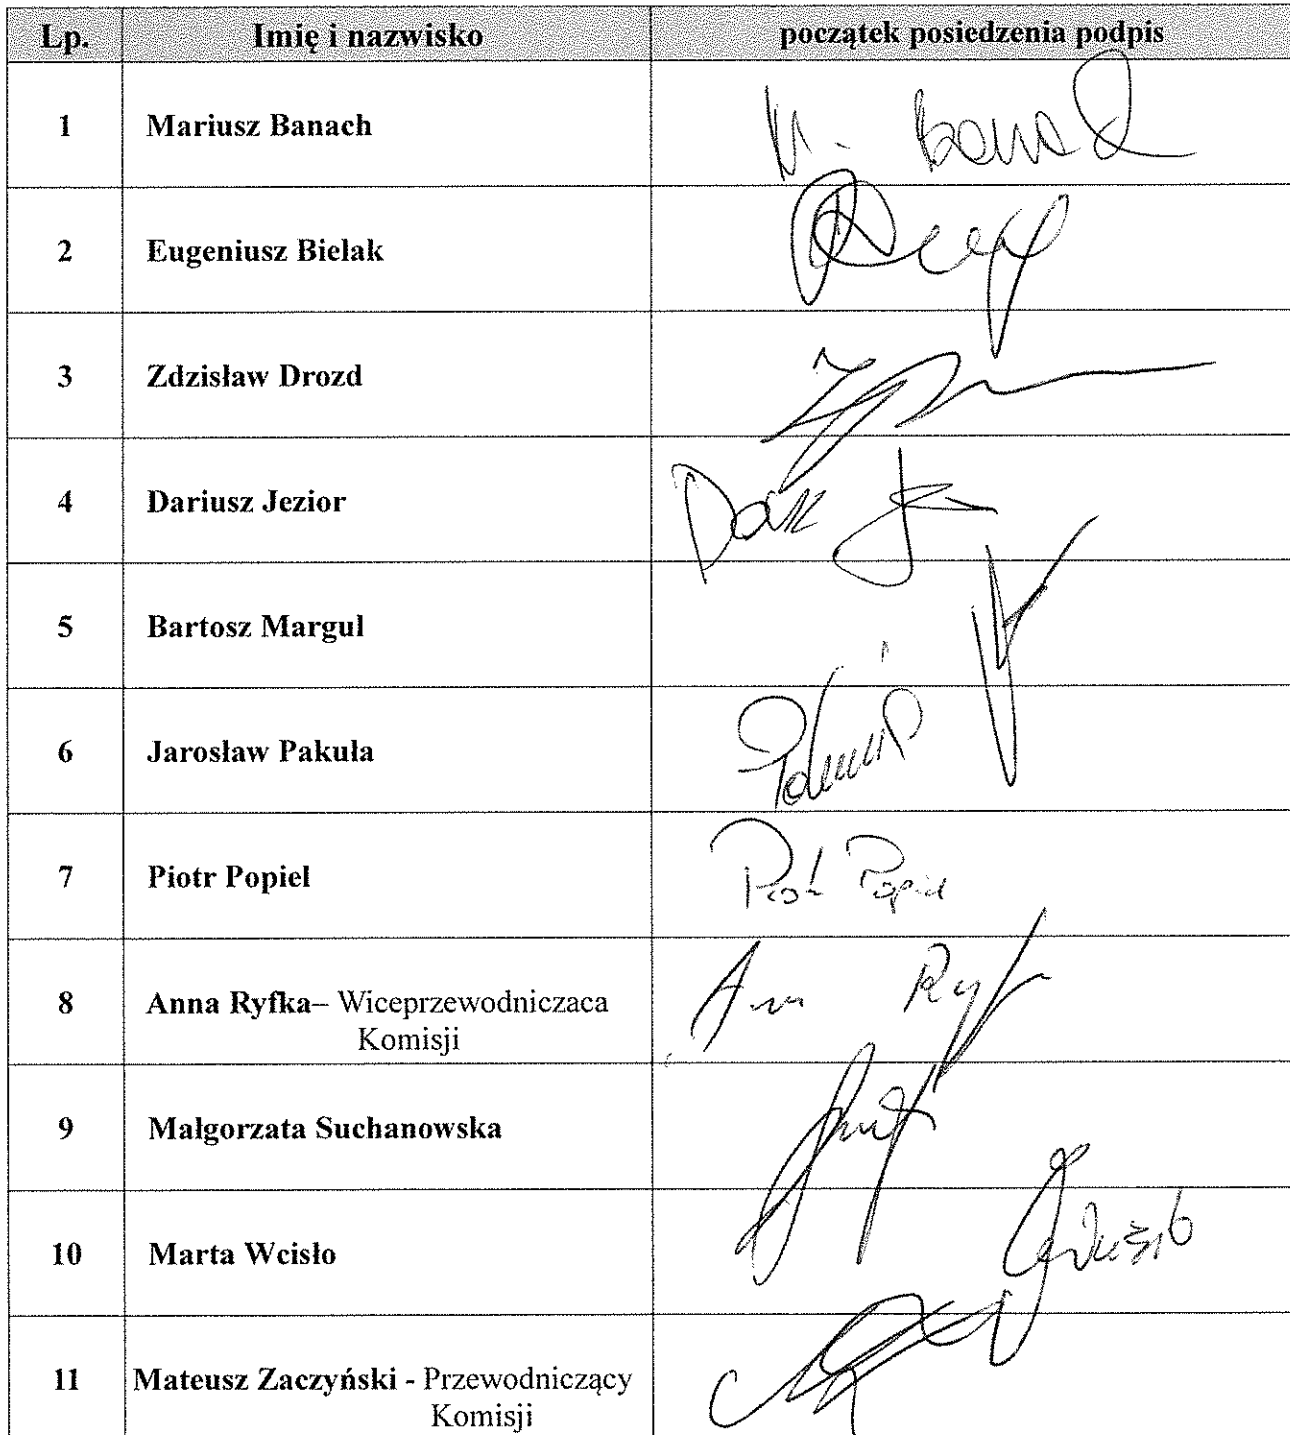 Lp. Imię i nazwisko początek posiedzenia podpis
1 Mariusz Banach M. Banach
2 Eugeniusz Bielak
3 Zdzisław Drozd
4 Dariusz Jezior
5 Bartosz Margul
6 Jarosław Pakuła
7 Piotr Popiel Piotr Popiel
8 Anna Ryfka– Wiceprzewodniczaca
Komisji
9 Małgorzata Suchanowska
10 Marta Wcisło
11 Mateusz Zaczyński - Przewodniczący
Komisji